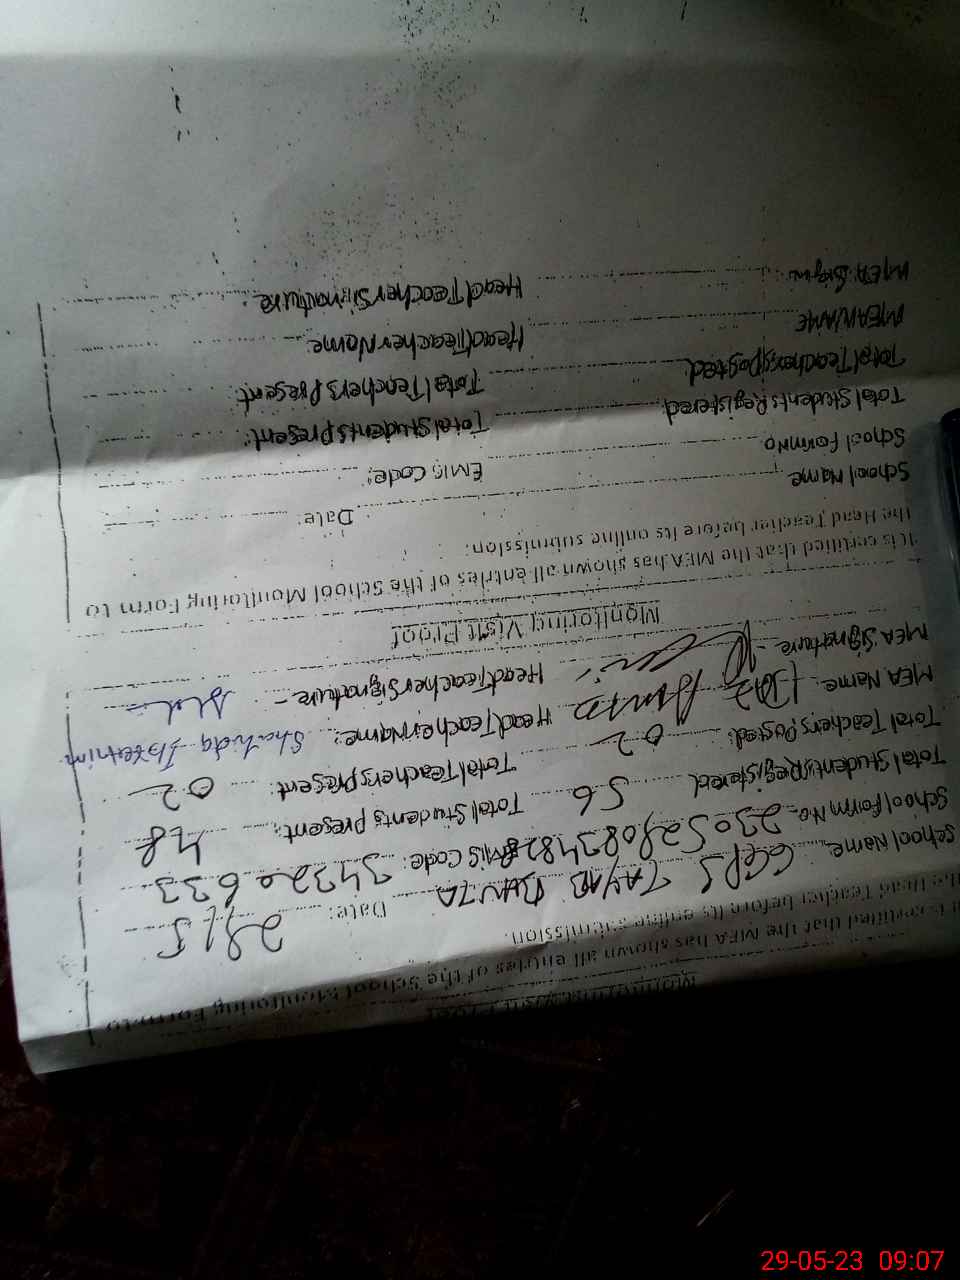 Monitoring Visit Proof
It is certified that the MEA has shown all entries of the School Monitoring Form to
the Head Teacher before its online submission.
School Name GGPS TAYAB Date: 29/5
School Form No. EMIS Code: 34320633
Total Students Registered 56 Total Students Present: 48
Total Teachers Posted: 02 Total Teachers Present: 02
MEA Name: Head Teacher Name: Shahida
MEA Signature - Head Teacher Signature -
Monitoring Visit Proof
It is certified that the MEA has shown all entries of the School Monitoring Form to
the Head Teacher before its online submission.
School Name Date:
School Form No EMIS Code:
Total Students Registered: Total Students Present:
Total Teachers posted: Total Teachers Present:
MEA NAME Head Teacher Name:
MEA Sign: Head Teacher Signature:
29-05-23 09:07